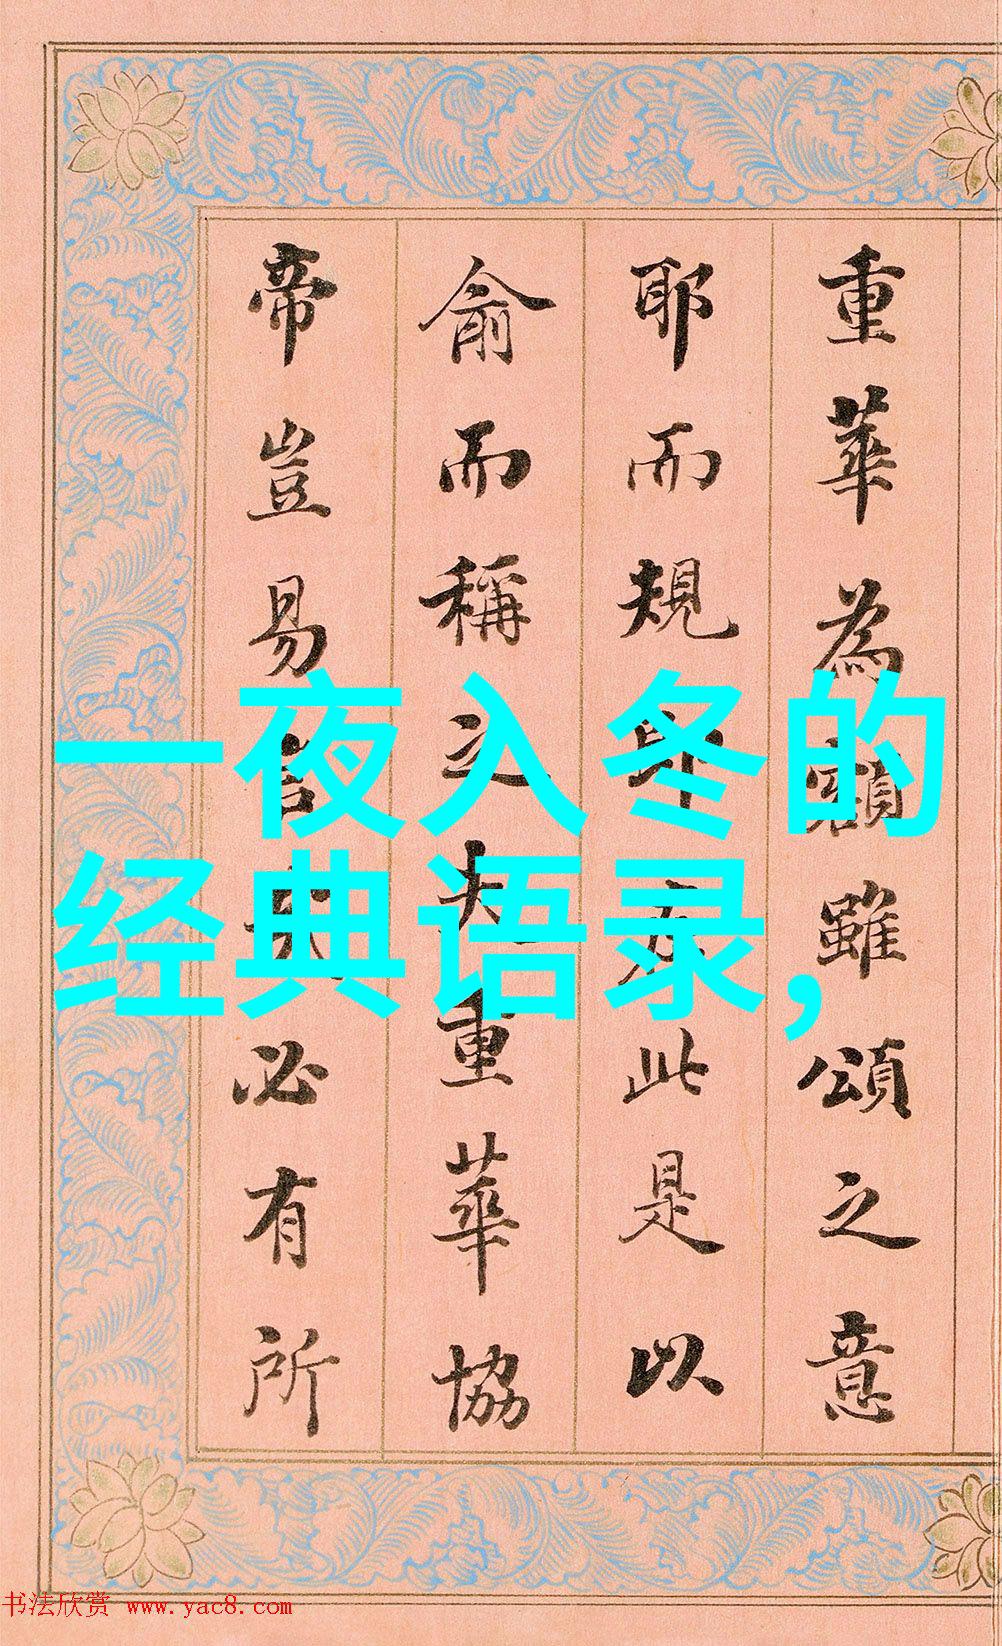 一夜入冬的
经典语录,
重華為額雖頌之意
耶而規即此是以
俞而稱之夫重華協
帝豈易言必有所
书法欣赏 www.yac8.com